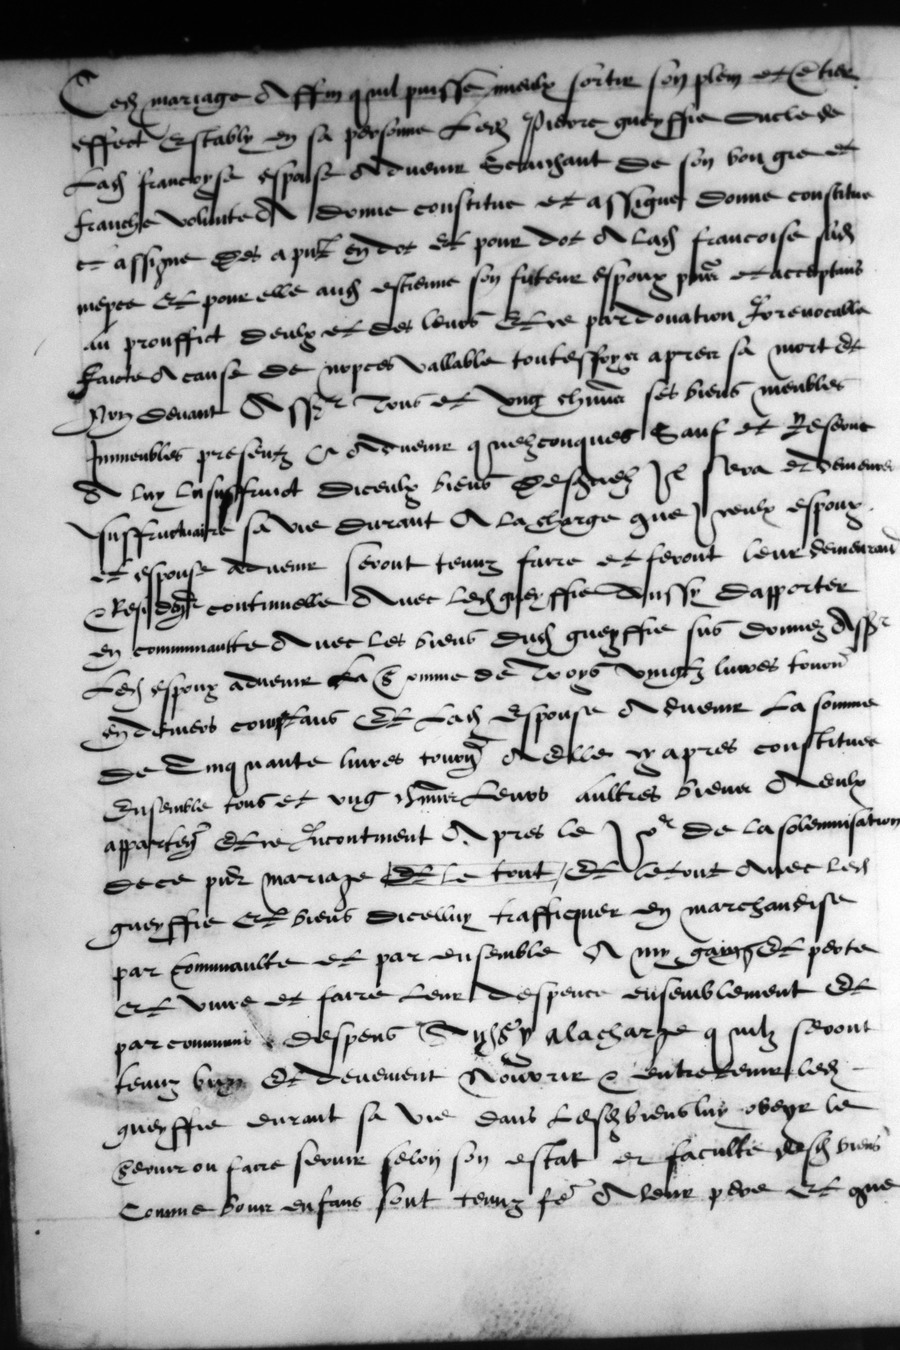 Led mariage Affin quil puisse mieulx sortir son plein et entier
effect Estably en sa personne Led Pierre gueyffie oncle de
Lad francoyse espouse Advenir de son bon gre et
franche volunte A donne constitue et assigne donne constitue
et assigne des a pnt en dot Et pour dot A lad francoise sad
niepce Et pour elle aud estienne son futeur espoux pnt et acceptans
au prouffict deulx et des leurs Et ce par donation Irrevocable
faicte A cause de nopces vallable toutesfoyes apres sa mort Et
Non devant Asscr Tous et ung chun ses biens meubles
Immeubles presentz Et Advenir quelzconques Sauf et Reserve
A luy Lusuffruict diceulx biens Desquelz Il sera et demeure
Usuffructuaire sa vie durant A la charge que Iceulx espoux
et espouse advenir seront tenuz faire et feront leur demeuran
Et Residence continuelle Avec led gueyffie Aussy Dapporter
en communaulte Avec les biens dud gueyffie sus donnez Asscr
Led espoux advenir La Somme de Troys vingtz livres tourn
en deniers contans Et Lad Espouse Advenir La somme
de Cinquante livres tourn A elle cy apres constituee
Ensemble tous et ung chun Leurs aultres biens A eulx
apparten Et ce Incontinent Apres le Jor de la solemnisation
de ce pnt mariage Et le tout Et le tout Avec led
gueyffie Et biens dicelluy traffiquer en marchandise
par communaulte et par ensemble A my gaing Et perte
Et vivre et faire Leur despence ensemblement Et
par communs despens a la charge quilz seront
tenuz bien Et deuement Nourrir Et entretenir led
gueyffie durant sa vie dans Lesd biens luy obeyr le
Servir ou faire servir selon son estat et faculte desd biens
Comme bons enfans sont tenuz fe A leur pere Et que